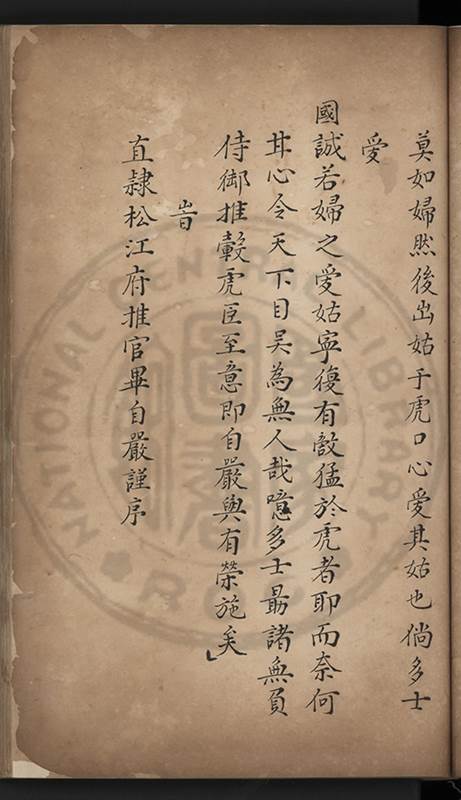 莫如婦然後出姑于虎口心愛其姑也倘多士
愛
國誠若婦之愛姑寧復有敵猛於虎者耶而奈何
甘心令天下目吳為無人哉噫多士勗諸無負
侍御推轂虎臣至意即自嚴與有榮施矣
旹
直隸松江府推官畢自嚴謹序
NATIONAL CENTRAL LIBRARY